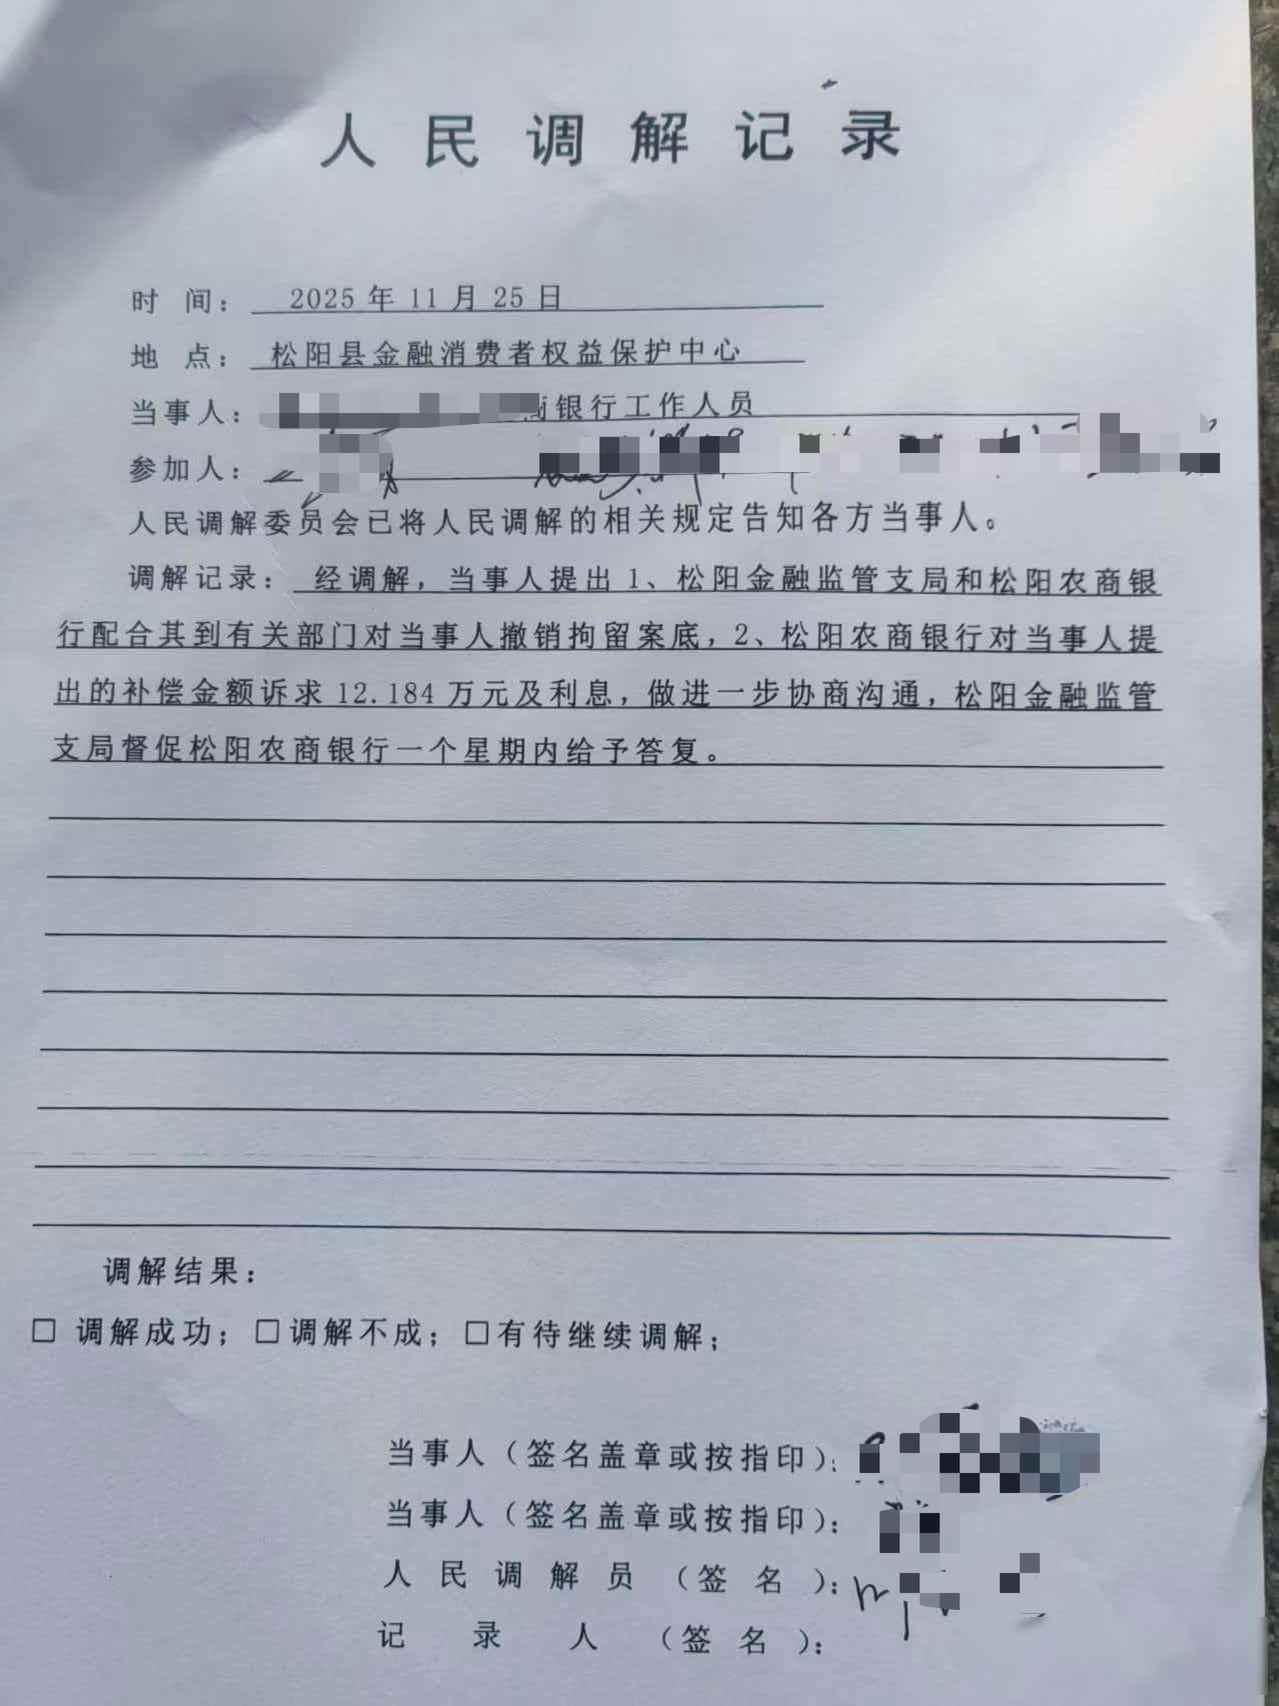 人民调解记录
时 间： 2025年11月25日
地 点： 松阳县金融消费者权益保护中心
当事人： 商银行工作人员
参加人：
人民调解委员会已将人民调解的相关规定告知各方当事人。
调解记录： 经调解，当事人提出1、松阳金融监管支局和松阳农商银
行配合其到有关部门对当事人撤销拘留案底，2、松阳农商银行对当事人提
出的补偿金额诉求12.184万元及利息，做进一步协商沟通，松阳金融监管
支局督促松阳农商银行一个星期内给予答复。
调解结果：
□ 调解成功；□调解不成；□有待继续调解；
当事人（签名盖章或按指印）：
当事人（签名盖章或按指印）：
人 民 调 解 员 （签 名 ）：
记 录 人 （签 名 ）：